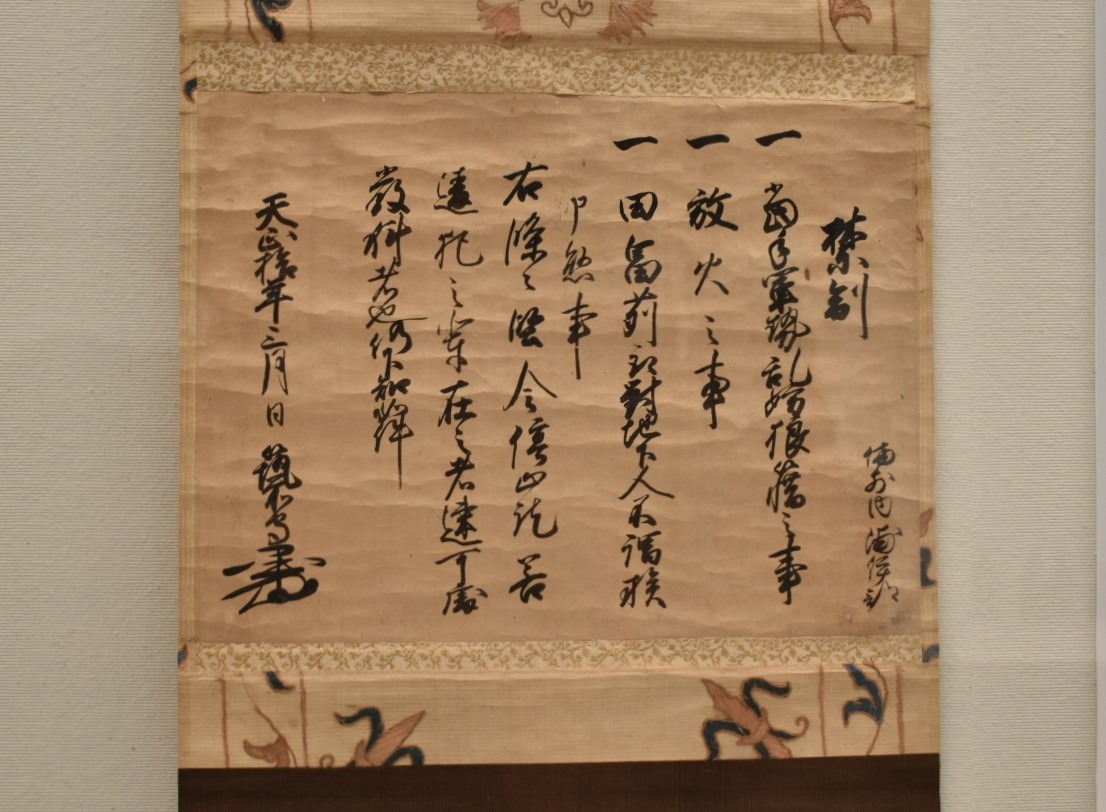 禁制
一 当手軍勢乱妨狼藉之事
一 放火之事
一 田畠苅取對地下人不謂族
申懸事
右條々堅令停止訖若
違犯之輩在之者速可處
嚴科者也仍下知如件
天正拾年三月日 筑前守